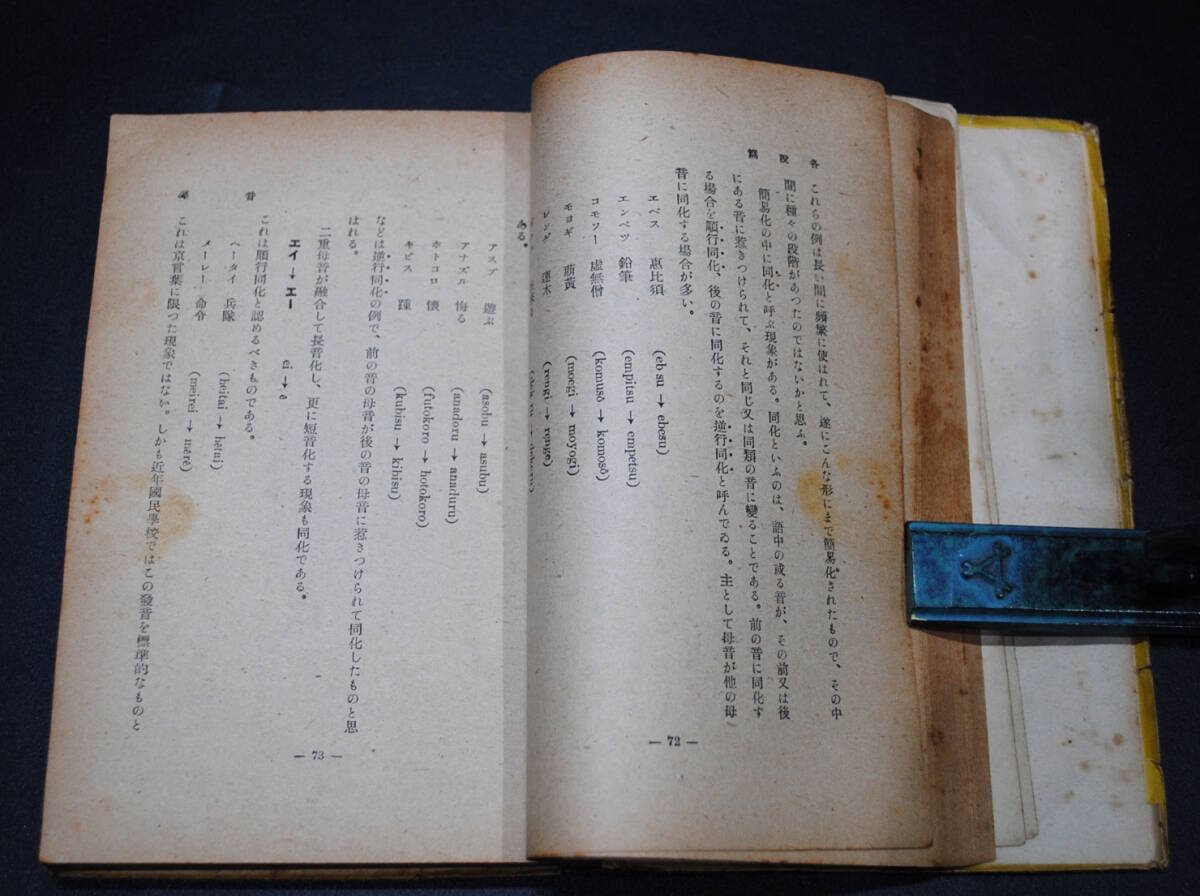 各說篇
これらの例は長い間に頻繁に使はれて、遂にこんな形にまで簡易化されたもので、その中
間に種々の段階があつたのではないかと思ふ。
簡易化の中に同化と呼ぶ現象がある。同化といふのは、語中の或る音が、その前又は後
にある音に惹きつけられて、それと同じ又は同類の音に變ることである。前の音に同化す
る場合を順行同化、後の音に同化するのを逆行同化と呼んでゐる。主として母音が他の母
音に同化する場合が多い。
エベス 惠比須 (eb su → ebesu)
エンペツ 鉛筆 (empitsu → empetsu)
コモソー 虛無僧 (komusō → komosō)
モヨギ 萠黃 (moegi → moyogi)
レンゲ 蓮木 (rengi → renge)
— 72 —
ある。
アスブ 遊ぶ (asobu → asubu)
アナズル 侮る (anadoru → anaduru)
ホトコロ 懷 (futokoro → hotokoro)
キビス 踵 (kubisu → kibisu)
などは逆行同化の例で、前の音の母音が後の音の母音に惹きつけられて同化したものと思
はれる。
二重母音が融合して長音化し、更に短音化する現象も同化である。
エイ → エー ei → ē
これは順行同化と認めるべきものである。
ヘータイ 兵隊 (heitai → hētai)
メーレー 命令 (meirei → mērē)
これは京言葉に限つた現象ではない。しかも近年國民學校ではこの發音を標準的なものと
音
— 73 —